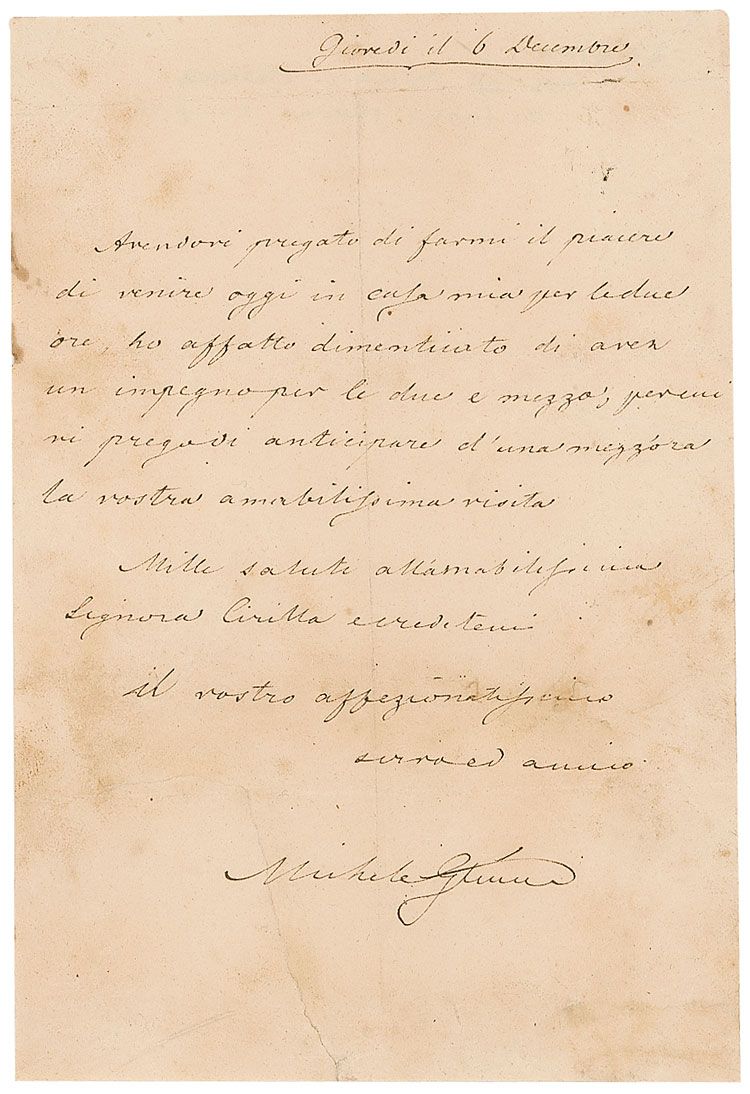 Giovedi il 6 Decembre
Avendovi pregato di farmi il piacere
di venire oggi in casa mia per le due
ore, ho affatto dimenticato di aver
un impegno per le due e mezzo, per cui
vi prego di anticipare d'una mezz'ora
la vostra amabilissima visita
Mille saluti all'amabilissima
Signora Ciritta e credetemi
il vostro affezionatissimo
servo ed amico
Michele